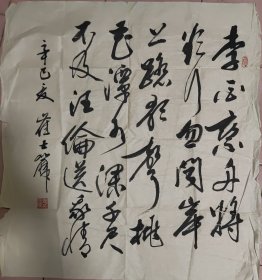 李白乘舟将
欲行忽闻岸
上踏歌声桃
花潭水深千尺
不及汪伦送我情
辛巳夏 崔士